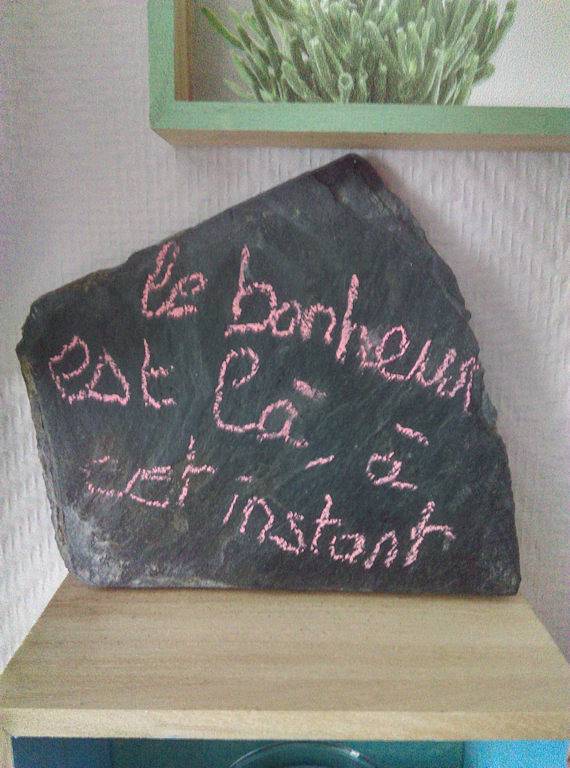 le bonheur
est là, à
cet instant